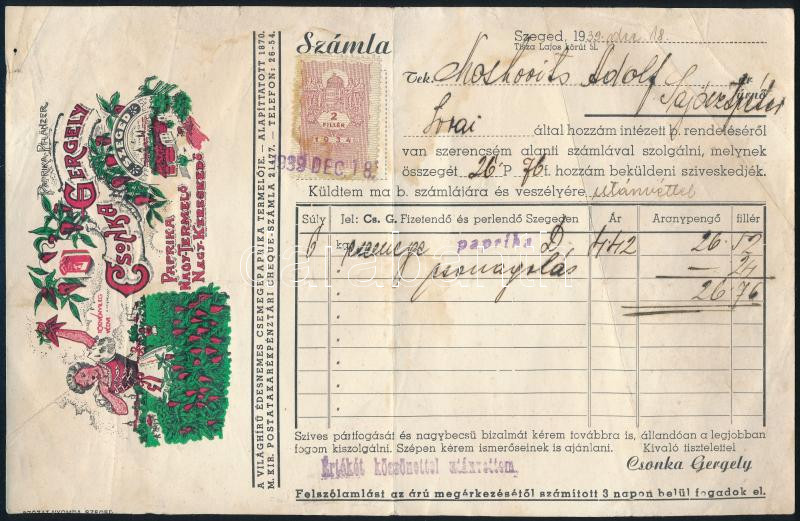 PAPRIKA-PFLANZER
GERGELY
CSONKA
SZEGED
PAPRIKA
NAGY-TERMELŐ
NAGY-KERESKEDŐ
A VILÁGHÍRŰ ÉDESNEMES CSEMEGEPAPRIKA TERMELŐJE. — ALAPÍTTATOTT 1870.
M. KIR. POSTATAKARÉKPÉNZTÁRI CHEQUE-SZÁMLA 21477. — TELEFON: 26-54.
Számla
2
FILLÉR
1934
1939 DEC 18.
Szeged, 1939 18.
Tisza Lajos körút 51.
Tek. Moskovits Adolf úr
úrnő
által hozzám intézett b. rendeléséről
van szerencsém alanti számlával szolgálni, melynek
összegét 26 P 76 f. hozzám beküldeni szíveskedjék.
Küldtem ma b. számlájára és veszélyére utánvéttel
Súly Jel: Cs. G. Fizetendő és perlendő Szegeden Ár Aranypengő fillér
6 kg. paprika D, 442 26 52
csomagolás — 24
26 76
Szíves pártfogását és nagybecsü bizalmát kérem továbbra is, állandóan a legjobban
fogom kiszolgálni. Szépen kérem ismerőseinek is ajánlani. Kiváló tisztelettel
Értékét köszönettel utánvettem.
Csonka Gergely
Felszólamlást az árú megérkezésétől számított 3 napon belül fogadok el.